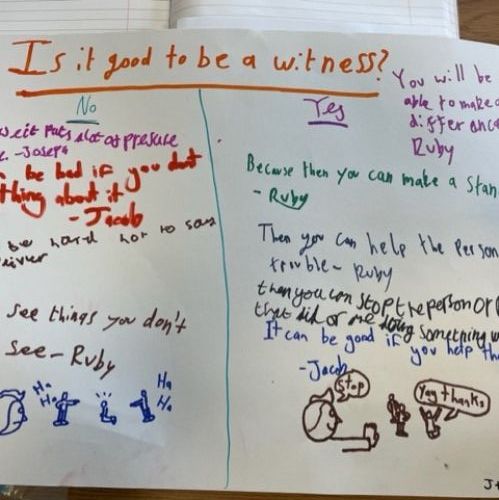 Is it good to be a witness?
No
it puts alot of presure
- Joseph
be bad if you dont
thing about it
- Jacob
be hard not to say
see things you don't
see - Ruby
Ha
Ha
Ha
Ha
Yes
You will be
able to make a
differance
Ruby
Because then you can make a stan
- Ruby
Then you can help the person
trouble - Ruby
then you can stop the person or
that did or are doing something w
It can be good if you help th
- Jacob
Stop
Yay thanks